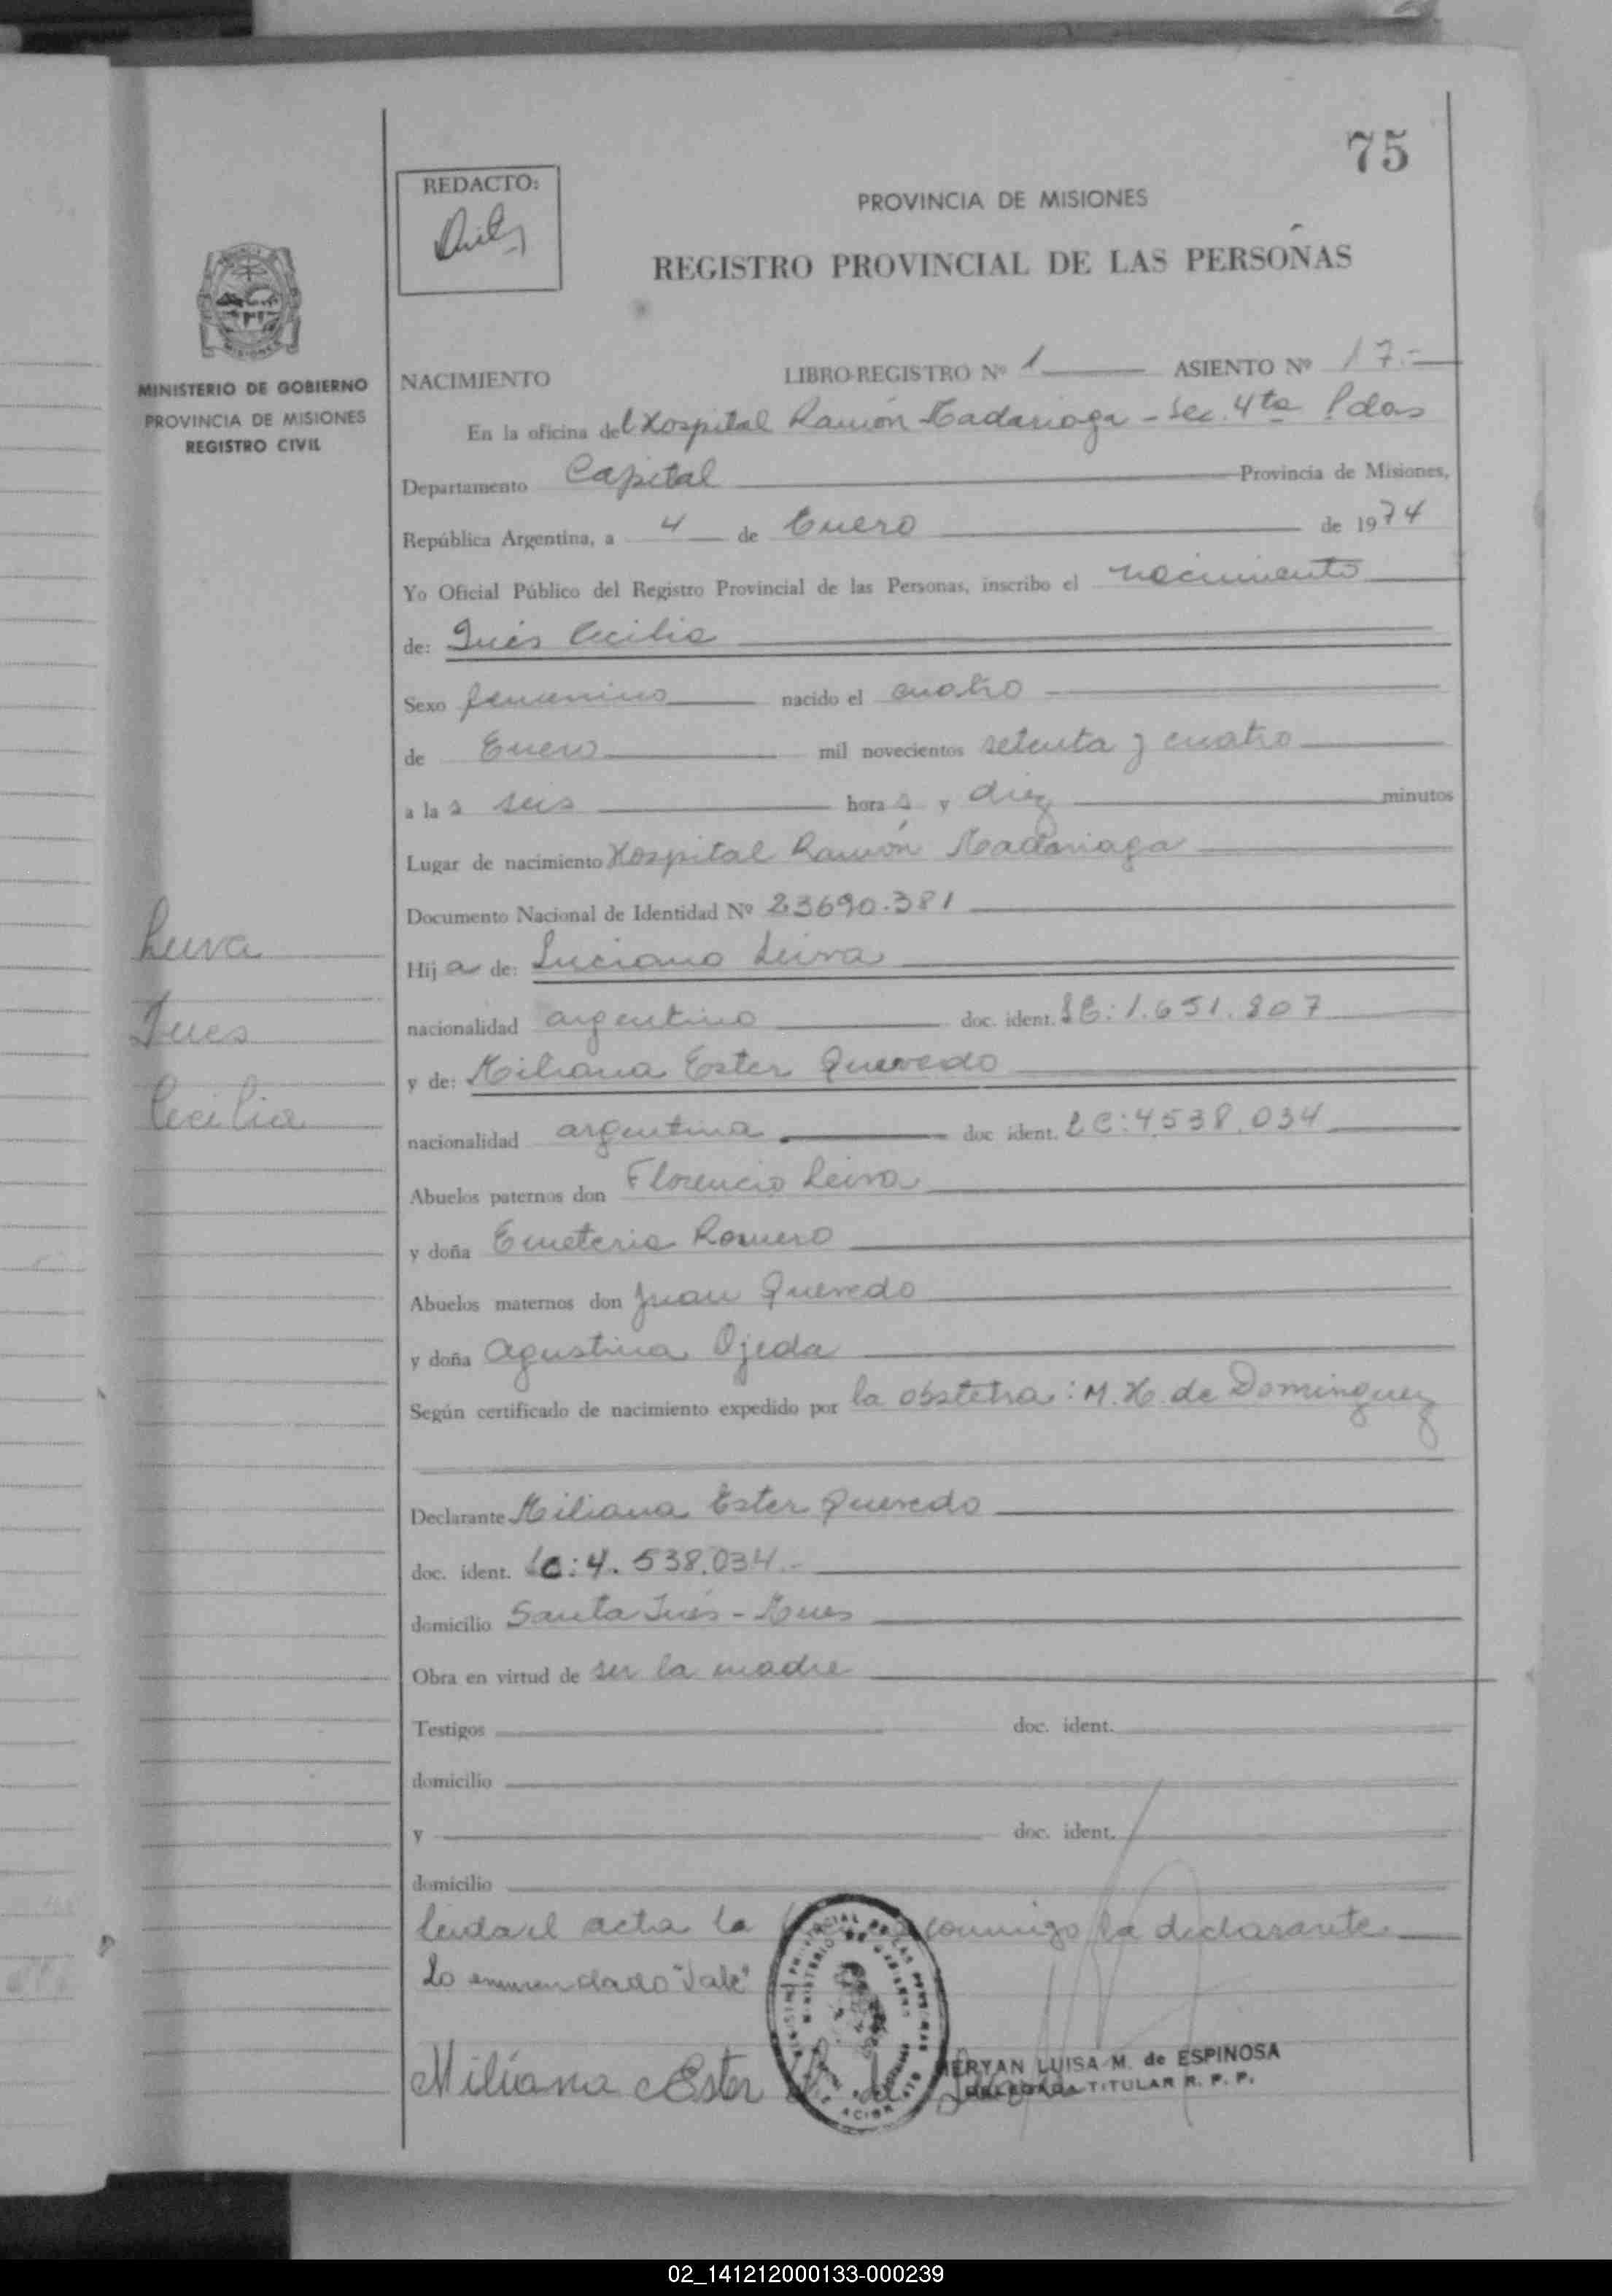 75
REDACTO:
PROVINCIA DE MISIONES
REGISTRO PROVINCIAL DE LAS PERSONAS
MINISTERIO DE GOBIERNO
PROVINCIA DE MISIONES
REGISTRO CIVIL
NACIMIENTO LIBRO-REGISTRO Nº 1 ASIENTO Nº 17.-
En la oficina del Hospital Ramón Madariaga - Sec. 4ta Pdas
Departamento Capital Provincia de Misiones,
República Argentina, a 4 de Enero de 1974
Yo Oficial Público del Registro Provincial de las Personas, inscribo el nacimiento
de: Inés Cecilia
Sexo femenino nacido el cuatro
de Enero mil novecientos setenta y cuatro
a las seis horas y diez minutos
Lugar de nacimiento Hospital Ramón Madariaga
Documento Nacional de Identidad Nº 23690.381
Leiva
Hija de: Luciano Leiva
nacionalidad argentino doc. ident. LE: 1.651.807
Ines
y de: Miliana Ester Quevedo
Cecilia
nacionalidad argentina doc ident. LC: 4.538.034
Abuelos paternos don Florencio Leiva
y doña Emeteria Romero
Abuelos maternos don Juan Quevedo
y doña Agustina Ojeda
Según certificado de nacimiento expedido por la obstetra: M. H. de Dominguez
Declarante Miliana Ester Quevedo
doc. ident. LC: 4. 538.034.-
domicilio Santa Inés - Mnes
Obra en virtud de ser la madre
Testigos doc. ident.
domicilio
y doc. ident.
domicilio
Leida el acta la conmigo la declarante
Lo enmendado "Vale"
Miliana Ester Q de
MERYAN LUISA M. de ESPINOSA
DELEGADA TITULAR R. P. P.
02_141212000133-000239